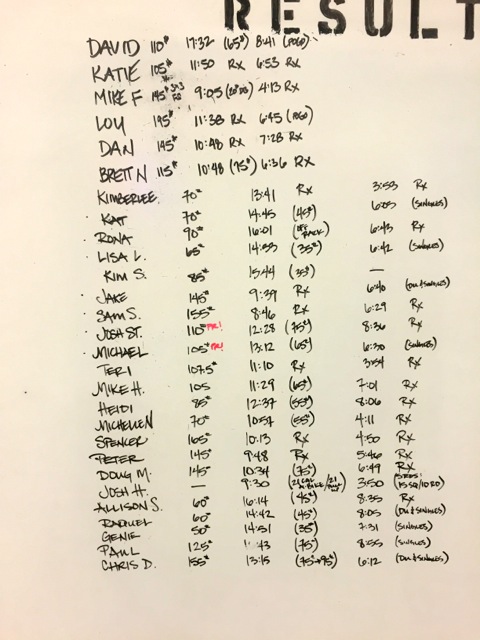 RESULT
DAVID 110# 17:32 (65#) 8:41 (POGO)
KATIE 105# 11:50 Rx 6:53 Rx
MIKE F 145# 9:05 4:13 Rx
LOU 195# 11:38 Rx 6:45 (POGO)
DAN 145# 10:48 Rx 7:28 Rx
BRETT N 115# 10:48 (75#) 6:36 Rx
KIMBERLEE 70# 13:41 Rx 3:53 Rx
KAT 70# 14:45 (45#) 6:03 (SINGLES)
RONA 90# 16:01 (OFF RACK) 6:43 Rx
LISA L. 65# 14:53 (35#) 6:42 (SINGLES)
KIM S. 85# 15:44 (35#) —
JAKE 145# 9:39 Rx 6:40 (DU & SINGLES)
SAM S. 155# 8:46 Rx 6:29 Rx
JOSH ST. 110# PR! 12:28 (75#) 8:36 Rx
MICHAEL 105# PR! 13:12 (65#) 6:30 (SINGLES)
TERI 107.5# 11:10 Rx 3:54 Rx
MIKE H. 105 11:29 (65#) 7:01 Rx
HEIDI 85# 12:37 (55#) 8:06 Rx
MICHELLE N 70# 10:57 (55#) 4:11 Rx
SPENCER 165# 10:13 Rx 4:50 Rx
PETER 145# 9:48 Rx 5:46 Rx
DOUG M. 145# 10:34 (75#) 6:49 Rx
JOSH H. — 9:30 3:50
ALLISON S. 60# 16:14 (45#) 8:35 Rx
RAQUEL 60# 14:42 (45#) 8:05 (DU & SINGLES)
GENIE 50# 14:51 (35#) 7:31 (SINGLES)
PAUL 125# :43 (75#) 8:55 (SINGLES)
CHRIS D. 155# 13:15 (75#→95#) 6:12 (DU & SINGLES)